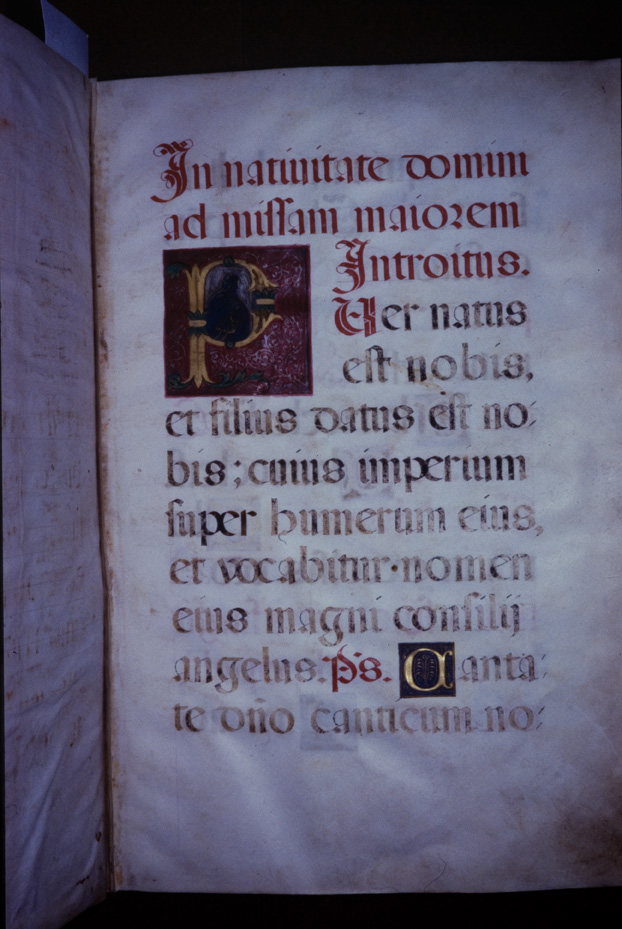 In natiuitate domini
ad missam maiorem
Introitus.
PUer natus
est nobis,
et filius datus est no:
bis; cuius imperium
super humerum eius,
et vocabitur·nomen
eius magni consilij
angelus. Ps. Canta:
te dño canticum no: